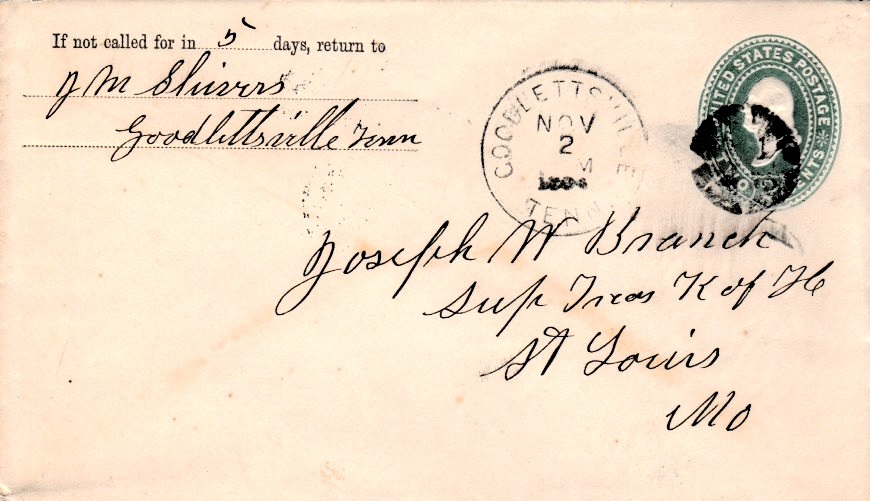 If not called for in 5 days, return to
J M Shivers
Goodlettsville Tenn
GOODLETTSVILLE
NOV
2
M
TENN
UNITED STATES POSTAGE
Joseph W Branch
Sup Treas K of H
St Louis
Mo